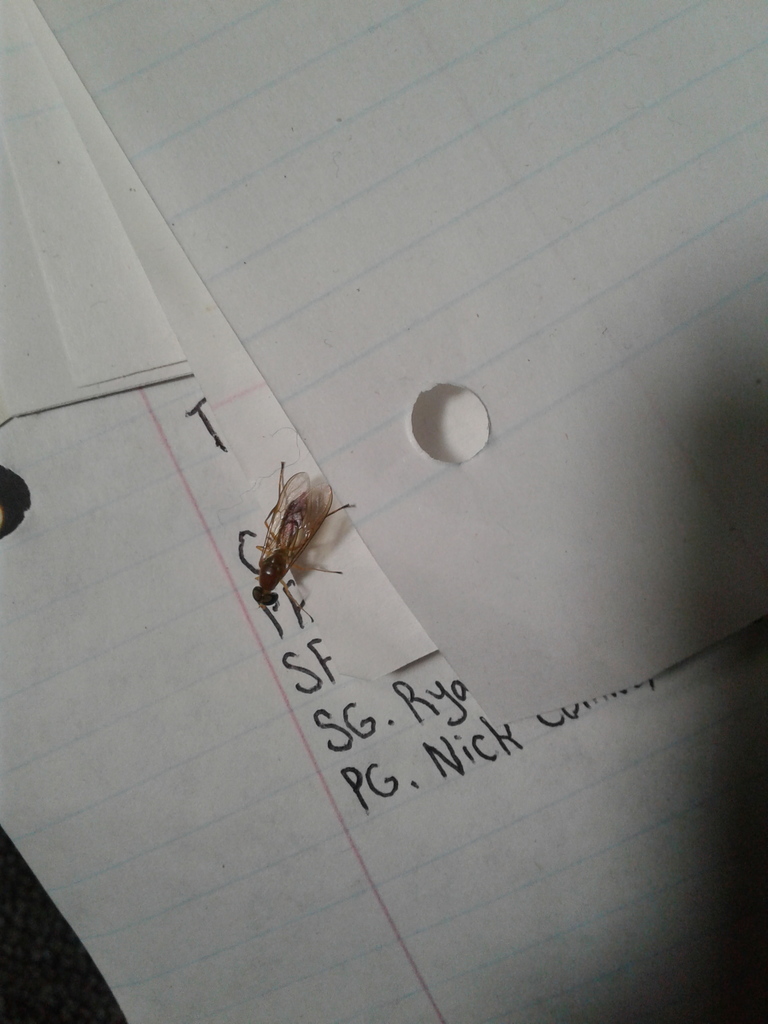 T
C
PF
SF
SG. Rya
PG. Nick